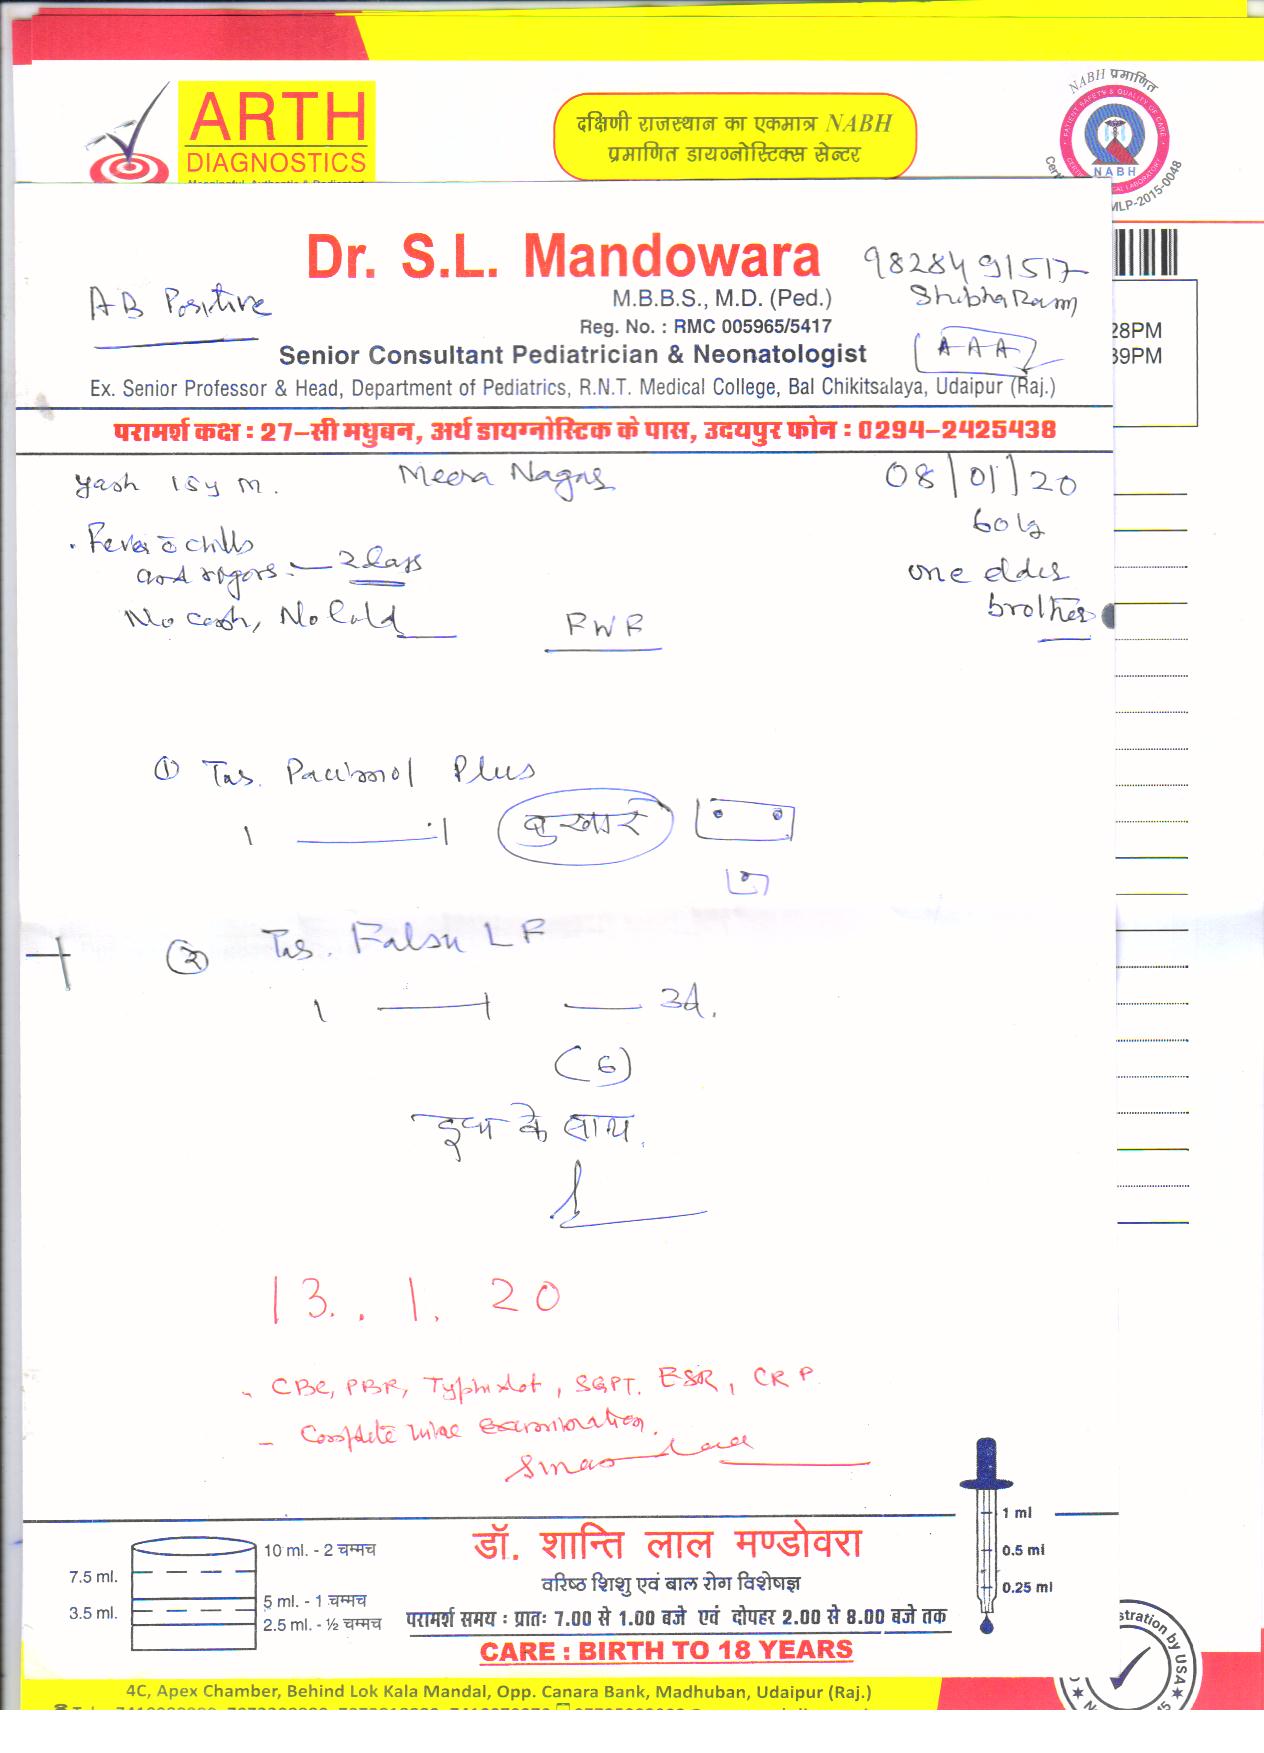 ARTH
DIAGNOSTICS
दक्षिणी राजस्थान का एकमात्र NABH
प्रमाणित डायग्नोस्टिक्स सेन्टर
NABH प्रमाणित
NABH
MLP-2015-0048
Dr. S.L. Mandowara
9828491517
AB Positive
M.B.B.S., M.D. (Ped.)
Shibha Ram
Reg. No. : RMC 005965/5417
28PM
Senior Consultant Pediatrician & Neonatologist
AAA
39PM
Ex. Senior Professor & Head, Department of Pediatrics, R.N.T. Medical College, Bal Chikitsalaya, Udaipur (Raj.)
परामर्श कक्ष : 27-सी मधुबन, अर्थ डायग्नोस्टिक के पास, उदयपुर फोन : 0294-2425438
Yash 15y M. Meera Nagar 08/01/20
60kg
Fever c chills
and rigors — 2 days
one elder
brother
No cough, No Cold
FWF
① Tab. Pacimol Plus
1 — 1 बुखार
② Tab. Falsu LF
1 — 1 — 3d.
(6)
दूध के साथ
13.1.20
- CBC, PBF, Typhidot, SGPT, ESR, CRP
- Complete urine examination.
डॉ. शान्ति लाल मण्डोवरा
वरिष्ठ शिशु एवं बाल रोग विशेषज्ञ
परामर्श समय : प्रातः 7.00 से 1.00 बजे एवं दोपहर 2.00 से 8.00 बजे तक
CARE : BIRTH TO 18 YEARS
10 ml. - 2 चम्मच
7.5 ml.
5 ml. - 1 चम्मच
3.5 ml.
2.5 ml. - ½ चम्मच
1 ml
0.5 ml
0.25 ml
stration by USA
4C, Apex Chamber, Behind Lok Kala Mandal, Opp. Canara Bank, Madhuban, Udaipur (Raj.)